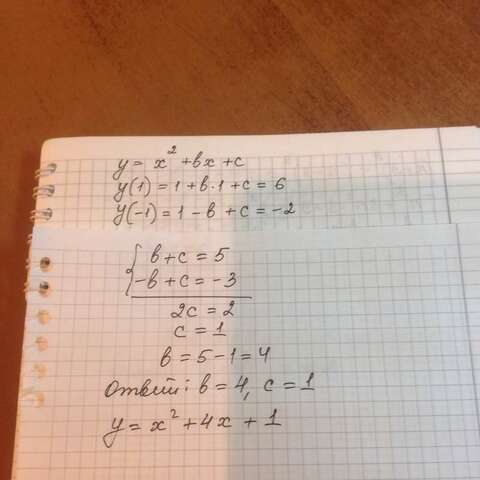 y = x² + bx + c
y(1) = 1 + b·1 + c = 6
y(-1) = 1 - b + c = -2
{ b + c = 5
-b + c = -3
2c = 2
c = 1
b = 5 - 1 = 4
Ответ: b = 4, c = 1
y = x² + 4x + 1